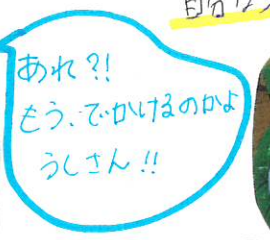 あれ?!
もう、でかけるのかよ
うしさん!!